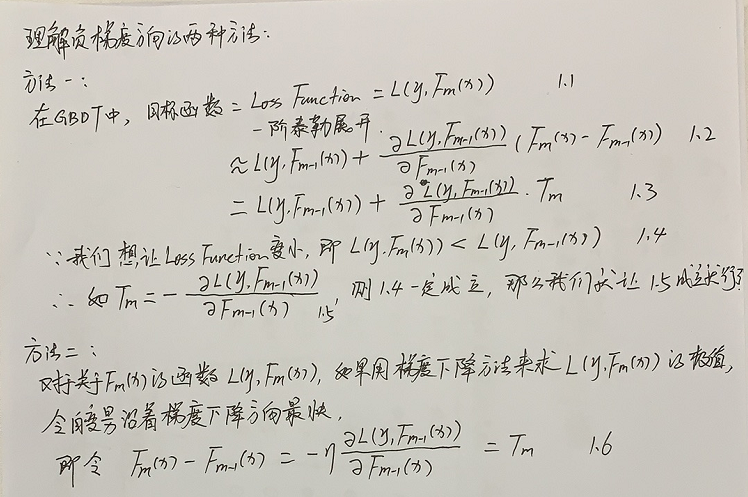 理解负梯度方向的两种方法:
方法一:
在GBDT中，目标函数 = Loss Function = L(y, Fm(x)) 1.1
一阶泰勒展开.
≈ L(y, Fm-1(x)) + ∂L(y, Fm-1(x))/∂Fm-1(x) (Fm(x) - Fm-1(x)) 1.2
= L(y, Fm-1(x)) + ∂L(y, Fm-1(x))/∂Fm-1(x) · Tm 1.3
∵ 我们想让Loss Function变小, 即 L(y, Fm(x)) < L(y, Fm-1(x)) 1.4
∴ 如 Tm = - ∂L(y, Fm-1(x))/∂Fm-1(x) 1.5, 则1.4一定成立, 那么我们就让1.5成立就行了
方法二:
对于关于Fm(x)的函数 L(y, Fm(x)), 如果用梯度下降方法来求 L(y, Fm(x)) 的极值,
令自变男沿着梯度下降方向最快,
即令 Fm(x) - Fm-1(x) = -η ∂L(y, Fm-1(x))/∂Fm-1(x) = Tm 1.6